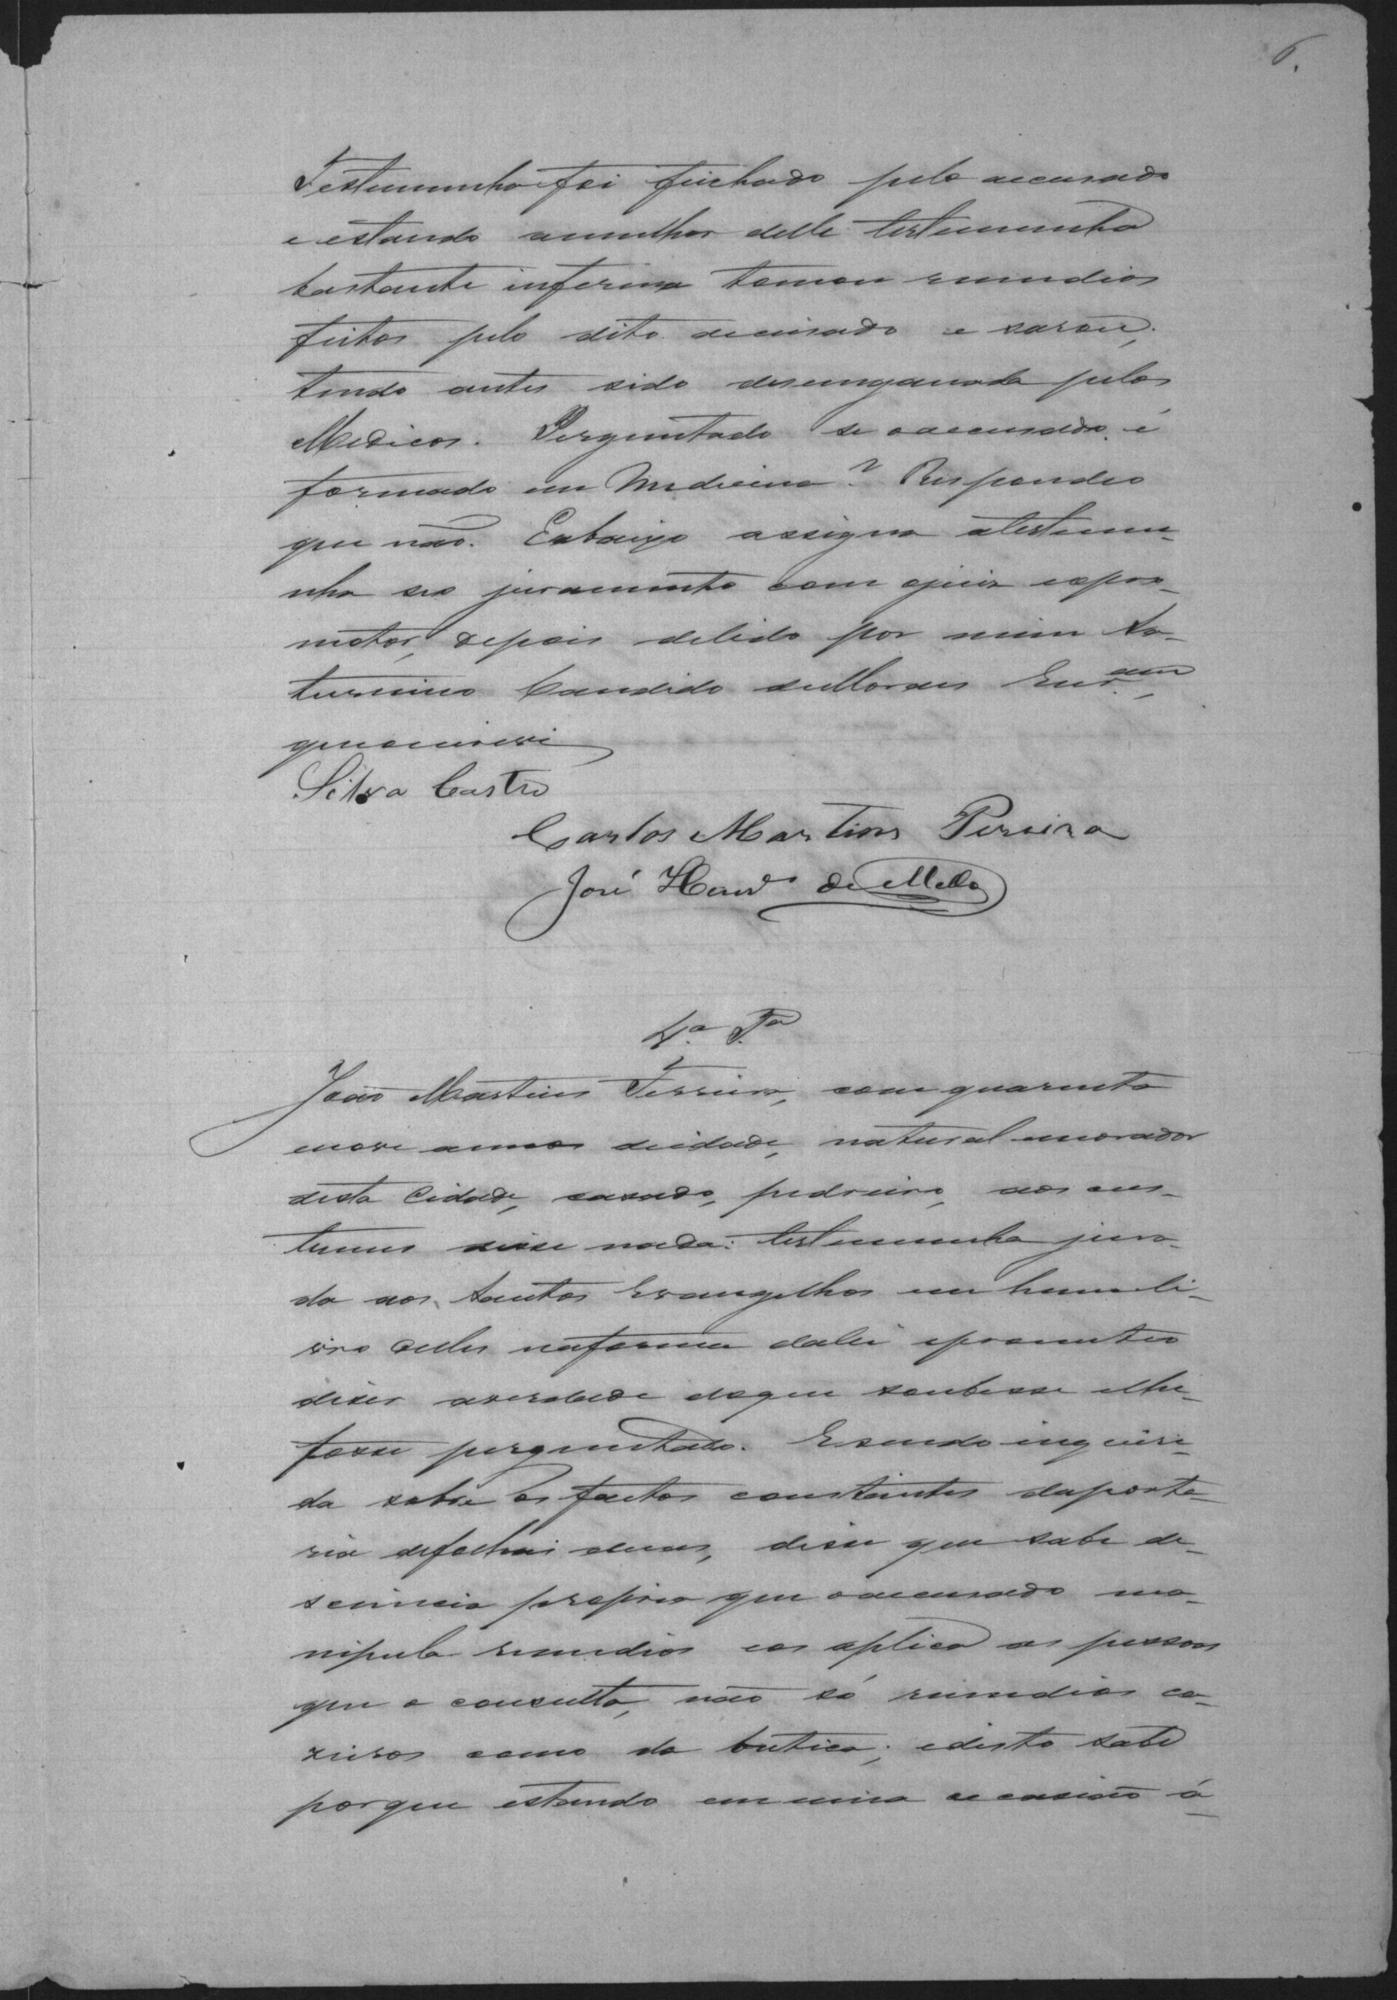 6.
Testemunha foi fechado pelo accusado
e estando amulher delle testemunha
bastante inferma tomou remedios
feitos pelo dito accusado e sarou,
tendo antes sido desenganada pelos
Medicos. Perguntado se oaccusado é
formado em Medicina? Respondeo
que não. Eabaixo assigna atestemu-
nha seo juramento com ojuiz eopro-
motor, depois delido por mim Sa-
turnino Candido deMoraes Escr.am
queoescrevi
Silva Castro
Carlos Martins Pereira
José de Mello
4.a T.a
João Martins Ferreira, com quarenta
enove annos deidade, natural emorador
desta Cidade, casado, pedreiro, aos cus-
tumes disse nada: testemunha jura-
da aos Santos Evangelhos em hum li-
vro delles naforma dalei eprometteo
dizer averdade doque soubesse elhe
fosse perguntado. Esendo inqueri-
da sobre os factos constantes daporta-
ria defolhas duas, disse que sabe de
sciencia propria que oaccusado ma-
nipula remedios eos aplica as pessoas
que o consulta, não só remedios ca-
zeiros como da butica; edisto sabe
porque estando em uma occasião á